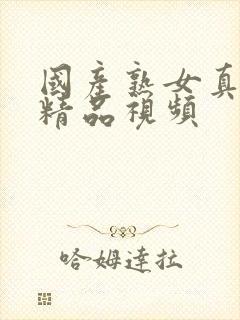 國產熟女真
精品視頻
哈姆達拉